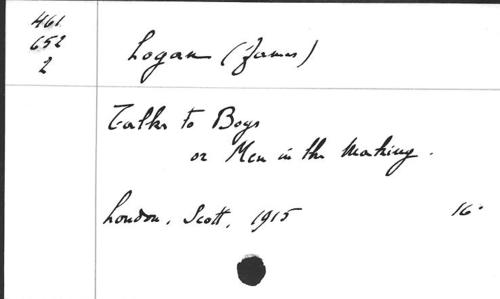 461
652
2
Logan (James)
Talks to Boys
or Men in the Making.
London, Scott, 1915 16°